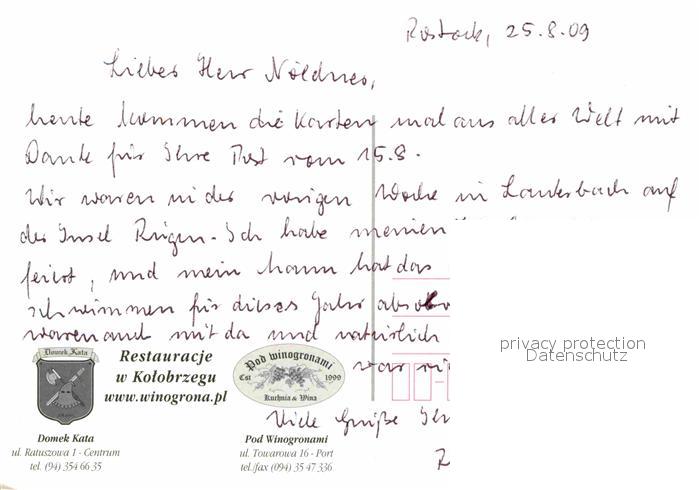 Rostock, 25.8.09
Lieber Herr Nöldner,
heute kommen die Karten mal aus aller Welt mit
Dank für Ihre Post vom 15.8.
Wir waren in der vorigen Woche in Lauterbach auf
der Insel Rügen. Ich habe meinen
feiert, und mein Mann hat das
schwimmen für dieses Jahr absolv
waren auch mit da und natürlich
war
Viele Grüße Ihr
privacy protection
Datenschutz
Domek Kata
Restauracje
w Kołobrzegu
www.winogrona.pl
Pod winogronami
Est 1999
Kuchnia & Wina
Domek Kata
ul. Ratuszowa 1 - Centrum
tel. (94) 354 66 35
Pod Winogronami
ul. Towarowa 16 - Port
tel./fax (094) 35 47 336